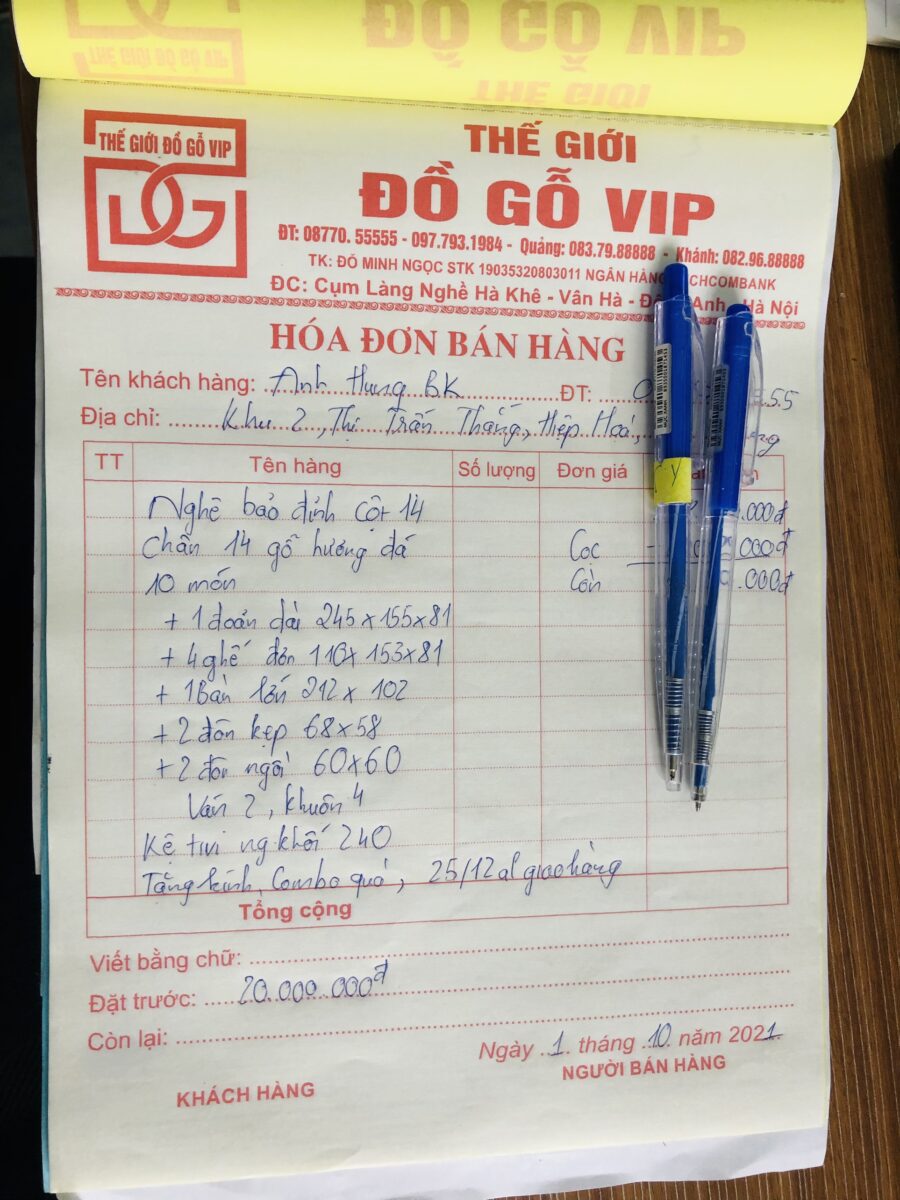 THẾ GIỚI ĐỒ GỖ VIP
ĐỒ GỖ VIP
THẾ GIỚI
THẾ GIỚI ĐỒ GỖ VIP
DG
THẾ GIỚI
ĐỒ GỖ VIP
ĐT: 08770. 55555 - 097.793.1984 - Quảng: 083.79.88888 - Khánh: 082.96.88888
TK: ĐỖ MINH NGỌC STK 19035320803011 NGÂN HÀNG CHCOMBANK
ĐC: Cụm Làng Nghề Hà Khê - Vân Hà - Đô Anh - Hà Nội
HÓA ĐƠN BÁN HÀNG
Tên khách hàng: Anh Hưng BK ĐT: 0 55
Địa chỉ: Khu 2, Thị Trấn Thắng, Hiệp Hoà, g
TT Tên hàng Số lượng Đơn giá
Nghê bảo đỉnh cột 14 .000đ
Chân 14 gỗ hương đá Cọc - 000đ
10 món Còn .000đ
+ 1 đoản dài 245 x 155 x 81
+ 4 ghế đơn 110 x 153 x 81
+ 1 Bàn lớn 212 x 102
+ 2 đôn kẹp 68 x 58
+ 2 đôn ngồi 60 x 60
Ván 2, khuôn 4
Kệ tivi ng khối 240
Tặng kính, Combo quà, 25/12 al giao hàng
Tổng cộng
Viết bằng chữ:
Đặt trước: 20.000.000đ
Còn lại:
Ngày 1 tháng 10 năm 2021
KHÁCH HÀNG NGƯỜI BÁN HÀNG